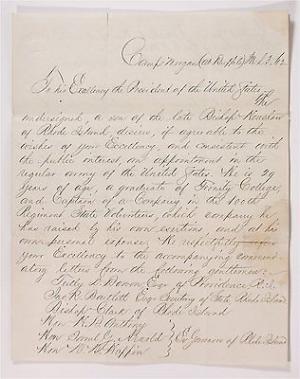 Camp Morgan
To his Excellency the President of the United States.
The
undersigned, a son of the late Bishop Henshaw
of Rhode Island, desires, if agreeable to the
wishes of your Excellency, and consistent with
the public interest, an appointment in the
regular army of the United States. He is 29
Years of age, a graduate of Trinity College,
and Captain of a Company in the 100th
Regiment State Volunteers, which company he
has raised by his own exertions, and at his
own personal expense. He respectfully
your Excellency to the accompanying commen-
datory letters from the following gentlemen:
Esq. of Providence, R.I.
Jno R. Bartlett Esq. Secretary of State Rhode Island
Bishop Clark of Rhode Island
Hon. Anthony
Hon. Arnold } Ex Governors of Rhode Island
Hon. W. W. Hoppin